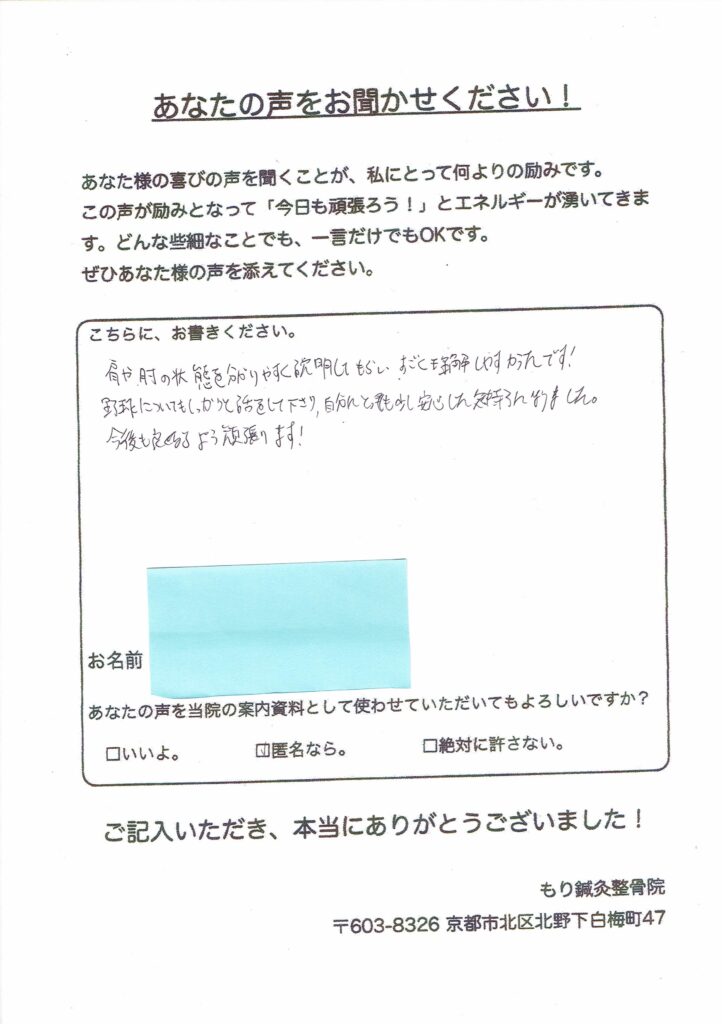 あなたの声をお聞かせください！
あなた様の喜びの声を聞くことが、私にとって何よりの励みです。
この声が励みとなって「今日も頑張ろう！」とエネルギーが湧いてきま
す。どんな些細なことでも、一言だけでもOKです。
ぜひあなた様の声を添えてください。
こちらに、お書きください。
肩や肘の状態を分かりやすく説明してもらい、すごく理解しやすかったです!
野球についてもしっかりと話をして下さり、自分も少し安心した気持ちになりました。
今後も良くなるよう頑張ります!
お名前
あなたの声を当院の案内資料として使わせていただいてもよろしいですか？
□いいよ。 ☑匿名なら。 □絶対に許さない。
ご記入いただき、本当にありがとうございました！
もり鍼灸整骨院
〒603-8326 京都市北区北野下白梅町47